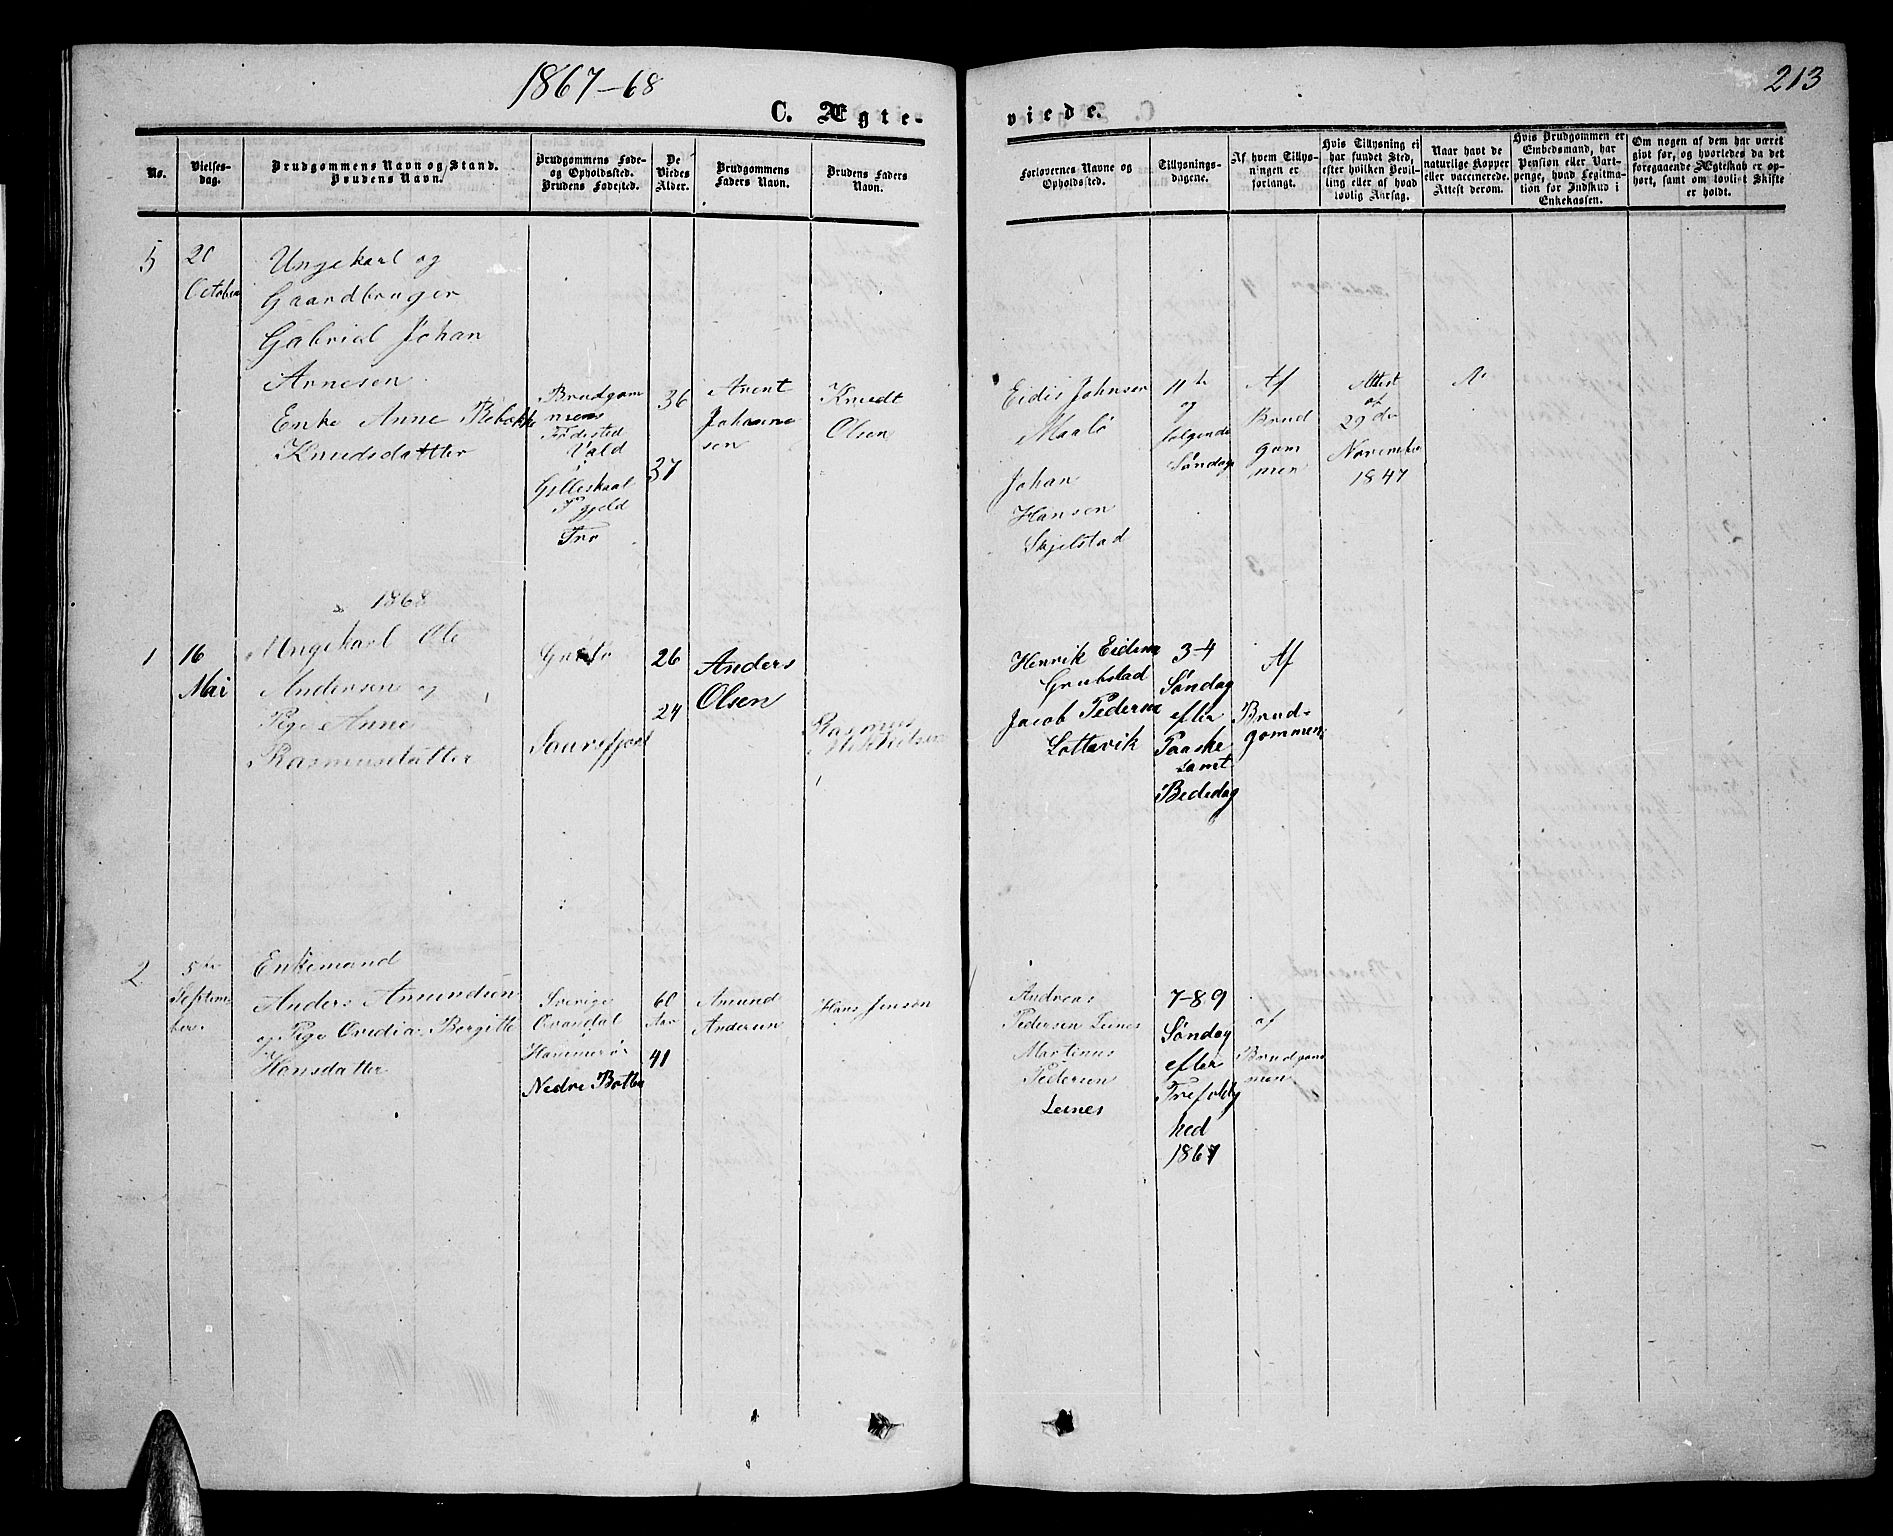 1867-68
213
C. Ægte-
viede.
No.
Vielses-
dag.
Brudgommens Navn og Stand.
Brudens Navn.
Brudgommens Føde-
og Opholdssted.
Brudens Fødested.
De
Viedes
Alder.
Brudgommens
Faders Navn.
Brudens Faders
Navn.
Forlovernes Navne og
Opholdssted.
Tillysnings-
dagene.
Af hvem Tillys-
ningen er
forlangt.
Hvis Tillysning ei
har fundet Sted,
efter hvilken Bevil-
ling eller af hvad
lovlig Aarsag.
Naar havt de
naturlige Kopper
eller vaccinerede.
Attest derom.
Hvis Brudgommen er
Embedsmand, har
Pension eller Vart-
penge, hvad Legitma-
tion for Indskud i
Enkekassen.
Om nogen af dem har været
givt før, og hvorledes da det
foregaaende Ægteskab er op-
hørt, samt om lovligt Skifte
er holdt.
5
20
October
Ungekarl og
Gaardbruger
Gabriel Johan
Arnesen
Enke Anne Rebekke
Knudsdatter
Brudgom
mens
Fødested
Vald
i
Gilleskaal
Pgjeld
Fro
36
37
Arent
Johanne
sen
Knudt
Olsen
Eidis Johnsen
Maalø
Johan
Hansen
Skjelstad
11te
og
følgende
Søndage
Af
Brud
gom
men
Attest
af
29de
November
1847
1868
1
16
Mai
Ungekarl Ole
Andersen og
Pige Anne
Rasmusdatter
Saurefjord
26
24
Anders
Olsen
Rasmus
Henrik Eidem
Grubstad
Jacob Pedersen
Lottavik
3-4
Søndag
efter
Paaske
samt
Bededag
Af
Brud-
gommen
2
5te
Septem
ber.
Enkemand
Anders Amundsen
og Pige Ovedia Bergitte
Hansdatter
Sverige
Hammerø
Nedre Botten
60
Aar
41
Amund
Andersen
Hans Jensen
Andreas
Pedersen Leines
Martinus
Pedersen
Leines
7-8-9
Søndag
efter
Trefoldig
hed
1867
af
Brudgom
men